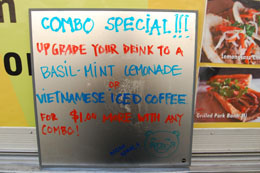 COMBO SPECIAL!!!
UPGRADE YOUR DRINK TO A
BASIL-MINT LEMONADE
OR
VIETNAMESE ICED COFFEE
FOR $1.00 MORE WITH ANY
COMBO!
Grilled Pork Banh Mi